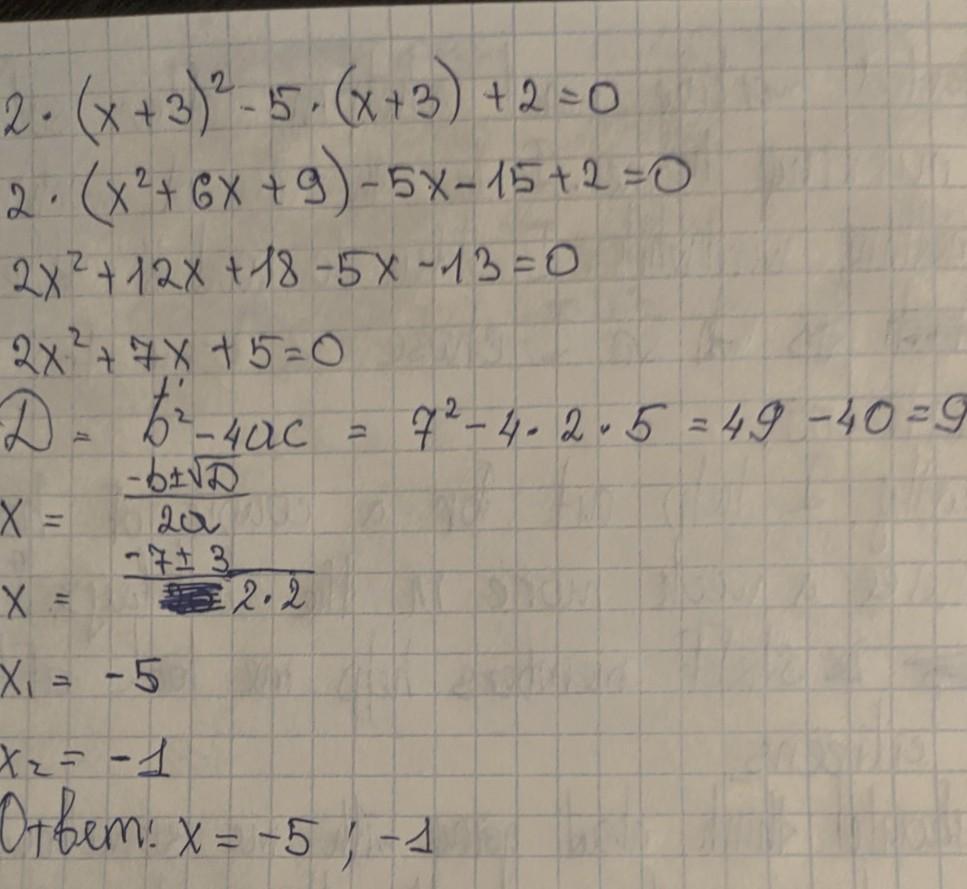 2·(x+3)²-5·(x+3)+2=0
2·(x²+6x+9)-5x-15+2=0
2x²+12x+18-5x-13=0
2x²+7x+5=0
D = b²-4ac = 7²-4·2·5=49-40=9
x = (-b±√D)/(2a)
x = (-7±3)/(2·2)
x₁ = -5
x₂ = -1
Ответ: x = -5; -1